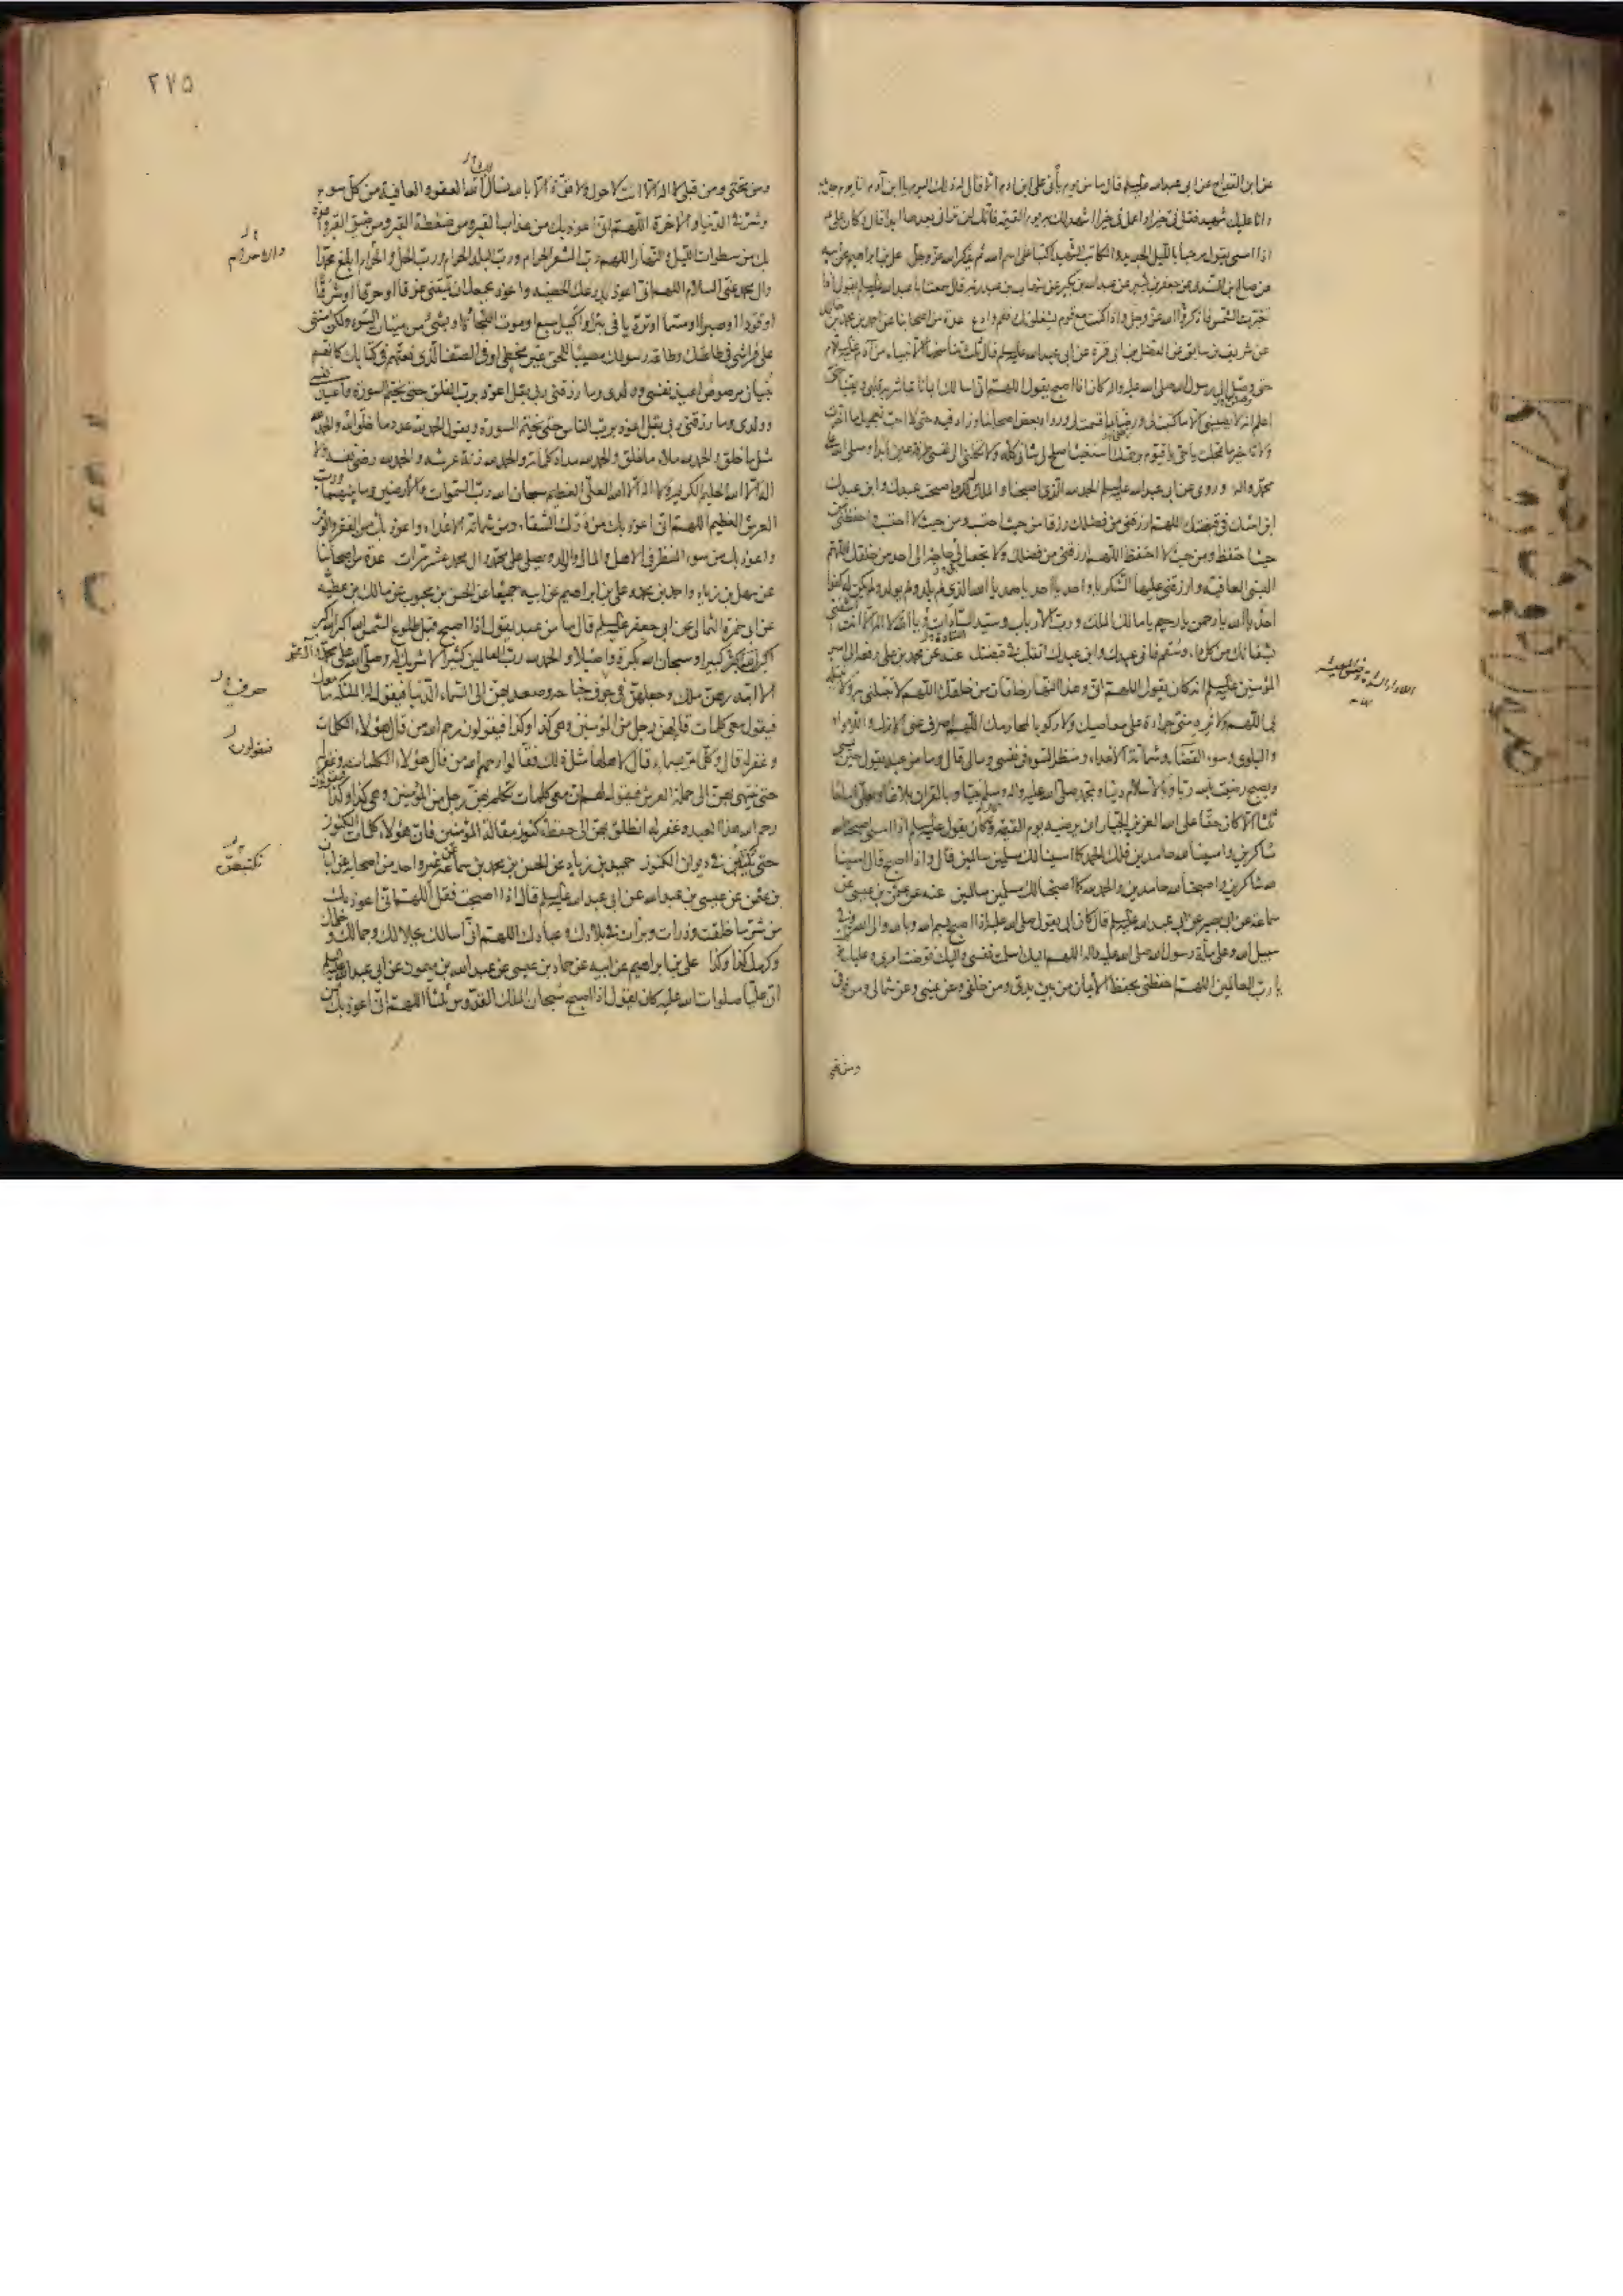 عن ابن القداح عن ابى عبد الله عليه السلم قال ما من يوم يأتى على ابن ادم الا قال له ذلك اليوم يا ابن آدم انا يوم جديد
وانا عليك شهيد فقل فى خيرا واعمل فى خيرا اشهد لك به يوم القيمة فانك لن ترانى بعدها ابدا قال وكان على ع
اذا امسى يقول مرحبا بالليل الجديد والكاتب الشهيد اكتبا على اسم الله ثم يذكر الله عز وجل على بن ابراهيم عن ابيه
عن صالح بن السندى عن جعفر بن بشير عن عبد الله بن بكير عن شهاب بن عبد ربه قال سمعت ابا عبد الله عليه السلم يقول اذا
تغيرت الشمس فاذكر الله عز وجل واذا كنت مع قوم يشغلونك فقم وادع عدة من اصحابنا عن احمد بن محمد بن خالد
عن شريف بن سابق عن الفضل بن ابى قرة عن ابى عبد الله عليه السلم قال ثلث تناسخها الانبياء من آدم عليه السلام
حتى وصلن الى رسول الله صلى الله عليه واله كان اذا اصبح يقول اللهم انى اسالك ايمانا تباشر به قلبى ويقينا حتى
اعلم انه لا يصيبنى الا ما كتبت لى ورضنى بما قسمت لى ورواه بعض اصحابنا وزاد فيه حتى لا احب تعجيل ما اخرت
ولا تاخير ما عجلت يا حى يا قيوم برحمتك استغيث اصلح لى شانى كله ولا تكلنى الى نفسى طرفة عين ابدا وصلى الله على
محمد واله وروى عن ابى عبد الله عليه السلم الحمد لله الذى اصبحنا والملك له واصبحت عبدك وابن عبدك
ابن امتك فى قبضتك اللهم ارزقنى من فضلك رزقا من حيث احتسب ومن حيث لا احتسب واحفظنى من
حيث احتفظ ومن حيث لا احتفظ اللهم ارزقنى من فضلك ولا تجعل لى حاجة الى احد من خلقك اللهم
البسنى العافية وارزقنى عليها الشكر يا واحد يا احد يا صمد يا الله الذى لم يلد ولم يولد ولم يكن له كفوا
احد يا الله يا رحمن يا رحيم يا مالك الملك ورب الارباب وسيد السادات ويا الله لا اله الا انت اشفنى
بشفائك من كل داء وسقم فانى عبدك وابن عبدك اتقلب فى قبضتك عنه عن محمد بن على رفعه الى امير
المؤمنين عليه السلم انه كان يقول اللهم انى وهذا النهار خلقان من خلقك اللهم لا تبتلنى به ولا تبتله
بى اللهم ولا تره منى جراءة على معاصيك ولا ركوبا لمحارمك اللهم اصرف عنى الازل واللاواء
والبلوى وسوء القضاء وشماتة الاعداء ومنظر السوء فى نفسى ومالى قال وما من عبد يقول حين يمسى
ويصبح رضيت بالله ربا وبالاسلام دينا وبمحمد صلى الله عليه واله وسلم نبيا وبالقران بلاغا وبعلى اماما
ثلثا الا كان حقا على الله العزيز الجبار ان يرضيه يوم القيمة قال وكان يقول عليه السلم اذا امسى اصبحنا لله
شاكرين وامسينا لله حامدين فلك الحمد كما امسينا لك مسلمين سالمين قال واذا اصبح قال امسينا
لله شاكرين واصبحنا لله حامدين والحمد لله كما اصبحنا لك مسلمين سالمين عنه عن عثمن بن عيسى عن
سماعة عن ابى بصير عن ابى عبد الله عليه السلم قال كان ابى يقول صلى الله عليه اذا اصبح بسم الله وبالله والى الله وفى
سبيل الله وعلى ملة رسول الله صلى الله عليه واله اللهم اليك اسلمت نفسى واليك فوضت امرى وعليك
يا رب العالمين اللهم احفظنى بحفظ الايمان من بين يدى ومن خلفى وعن يمينى وعن شمالى ومن فوقى
ومن تحتى
٢٧٥
ومن تحتى ومن قبلى لا اله الا انت لا حول ولا قوة الا بالله نسال الله العفو والعافية من كل سوء
وشر فى الدنيا والاخرة اللهم انى اعوذ بك من عذاب القبر ومن ضغطة القبر ومن ضيق القبر واعوذ
بك من سطوات الليل والنهار اللهم رب المشعر الحرام ورب البلد الحرام ورب الحل والحرام ابلغ محمدا
وال محمد عنى السلام اللهم انى اعوذ بدرعك الحصينة واعوذ بجمعك ان تميتنى غرقا او حرقا او شرقا
او قودا او صبرا او مسما او ترديا فى بئر او اكيل سبع او موت الفجاة او بشىء من ميتات السوء ولكن امتنى
على فراشى فى طاعتك وطاعة رسولك مصيبا للحق غير مخطئ او فى الصف الذى نعتهم فى كتابك كانهم
بنيان مرصوص اعيذ نفسى وولدى وما رزقنى ربى بقل اعوذ برب الفلق حتى يختم السورة واعيذ نفسى
وولدى وما رزقنى ربى بقل اعوذ برب الناس حتى يختم السورة ويقول الحمد لله عدد ما خلق الله والحمد لله
مثل ما خلق والحمد لله ملاء ما خلق والحمد لله مداد كلماته والحمد لله زنة عرشه والحمد لله رضى نفسه ولا
اله الا الله الحليم الكريم ولا اله الا الله العلى العظيم سبحان الله رب السموات والارضين وما بينهما ورب
العرش العظيم اللهم انى اعوذ بك من درك الشقاء ومن شماتة الاعداء واعوذ بك من الفقر والوقر
واعوذ بك من سوء المنظر فى الاهل والمال والولد ويصلى على محمد وال محمد عشر مرات عدة من اصحابنا
عن سهل بن زياد واحمد بن محمد وعلى بن ابراهيم عن ابيه جميعا عن الحسن بن محبوب عن مالك بن عطية
عن ابى حمزة الثمالى عن ابى جعفر عليه السلم قال ما من عبد يقول اذا اصبح قبل طلوع الشمس الله اكبر الله اكبر
كبيرا وسبحان الله بكرة واصيلا والحمد لله رب العالمين كثيرا لا شريك له وصلى الله على محمد وآله
الا ابتدرهن ملك وجعلهن فى جوف جناحه وصعد بهن الى السماء الدنيا فيقول له الملئكة ما معك
فيقول معى كلمات قالهن رجل من المؤمنين وهى كذا وكذا فيقولون رحم الله من قال هؤلاء الكلمات
وغفر له قال وكلما مر بسماء قال لاهلها مثل ذلك فقالوا رحم الله من قال هؤلاء الكلمات وغفر له
حتى ينتهى بهن الى حملة العرش فيقول لهم ان معى كلمات تكلم بهن رجل من المؤمنين وهى كذا وكذا فيقولون
رحم الله هذا العبد وغفر له انطلق بهن الى حفظة كنوز مقالة المؤمنين فان هؤلاء كلمات الكنوز
حتى تكتبهن فى ديوان الكنوز حميد بن زياد عن الحسن بن محمد بن سماعة عن غير واحد من اصحابه عن ابان
بن عثمن عن عيسى بن عبد الله عن ابى عبد الله عليه السلم قال اذا اصبحت فقل اللهم انى اعوذ بك
من شر ما خلقت وذرات وبرات فى بلادك وعبادك اللهم انى اسالك بجلالك وجمالك وحلمك
وكرمك كذا وكذا على بن ابراهيم عن ابيه عن حماد بن عيسى عن عبد الله بن ميمون عن ابى عبد الله عليه السلم
ان عليا صلوات الله عليه كان يقول اذا اصبح سبحان الملك القدوس ثلثا اللهم انى اعوذ بك من
فيقولون
تكتبهن